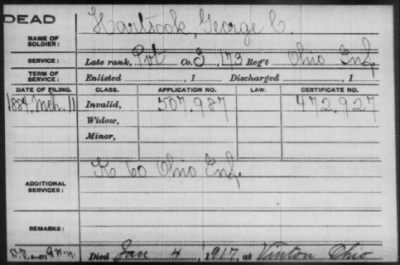 DEAD
NAME OF SOLDIER: Hartsook, George C.
SERVICE: Late rank, Pvt Co. I, 173 Reg't Ohio Inf.
TERM OF SERVICE: Enlisted , 1 Discharged , 1
DATE OF FILING. CLASS. APPLICATION NO. LAW. CERTIFICATE NO.
1884, Mch. 11 Invalid, 507,987 472,927
Widow,
Minor,
ADDITIONAL SERVICES: K 60 Ohio Inf.
REMARKS:
Died Jan 4, 1917, at Vinton Ohio